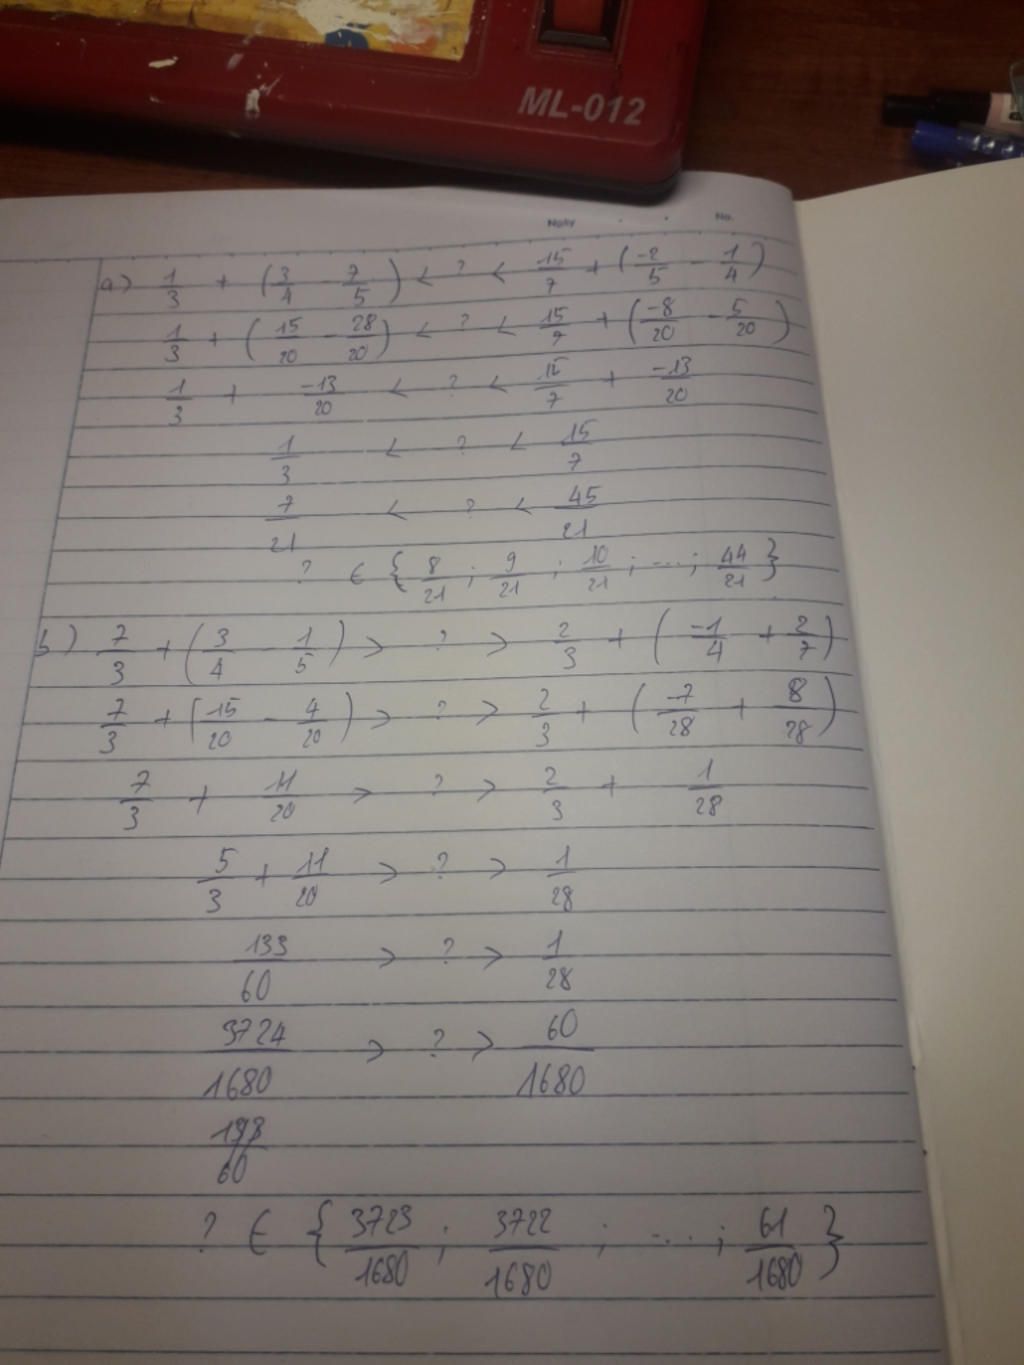 ML-012
Ngày No.
a) 1/3 + (3/4 - 7/5) < ? < 15/7 + (-2/5 - 1/4)
1/3 + (15/20 - 28/20) < ? < 15/7 + (-8/20 - 5/20)
1/3 + -13/20 < ? < 15/7 + -13/20
1/3 < ? < 15/7
7/21 < ? < 45/21
? ∈ {8/21 ; 9/21 ; 10/21 ; ... ; 44/21}
b) 7/3 + (3/4 - 1/5) > ? > 2/3 + (-1/4 + 2/7)
7/3 + (15/20 - 4/20) > ? > 2/3 + (-7/28 + 8/28)
7/3 + 11/20 > ? > 2/3 + 1/28
5/3 + 11/20 > ? > 1/28
133/60 > ? > 1/28
3724/1680 > ? > 60/1680
? ∈ {3723/1680 ; 3722/1680 ; ... ; 61/1680}